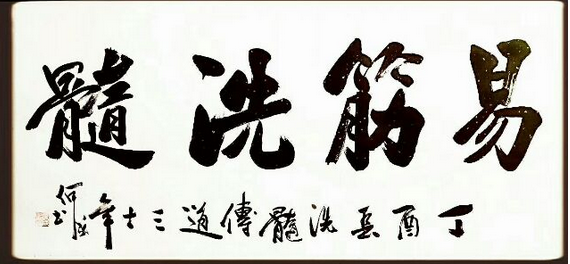 易筋洗髓
丁酉洗髓傳道三十年 何书